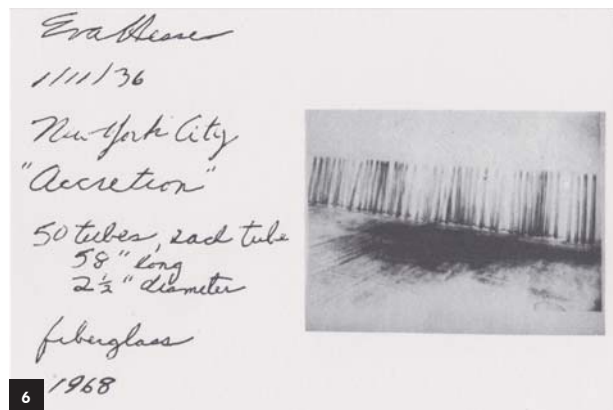 Eva Hesse
1/11/36
New York City
"Accretion"
50 tubes, each tube
58" long
2 ½" diameter
fiberglass
1968
6